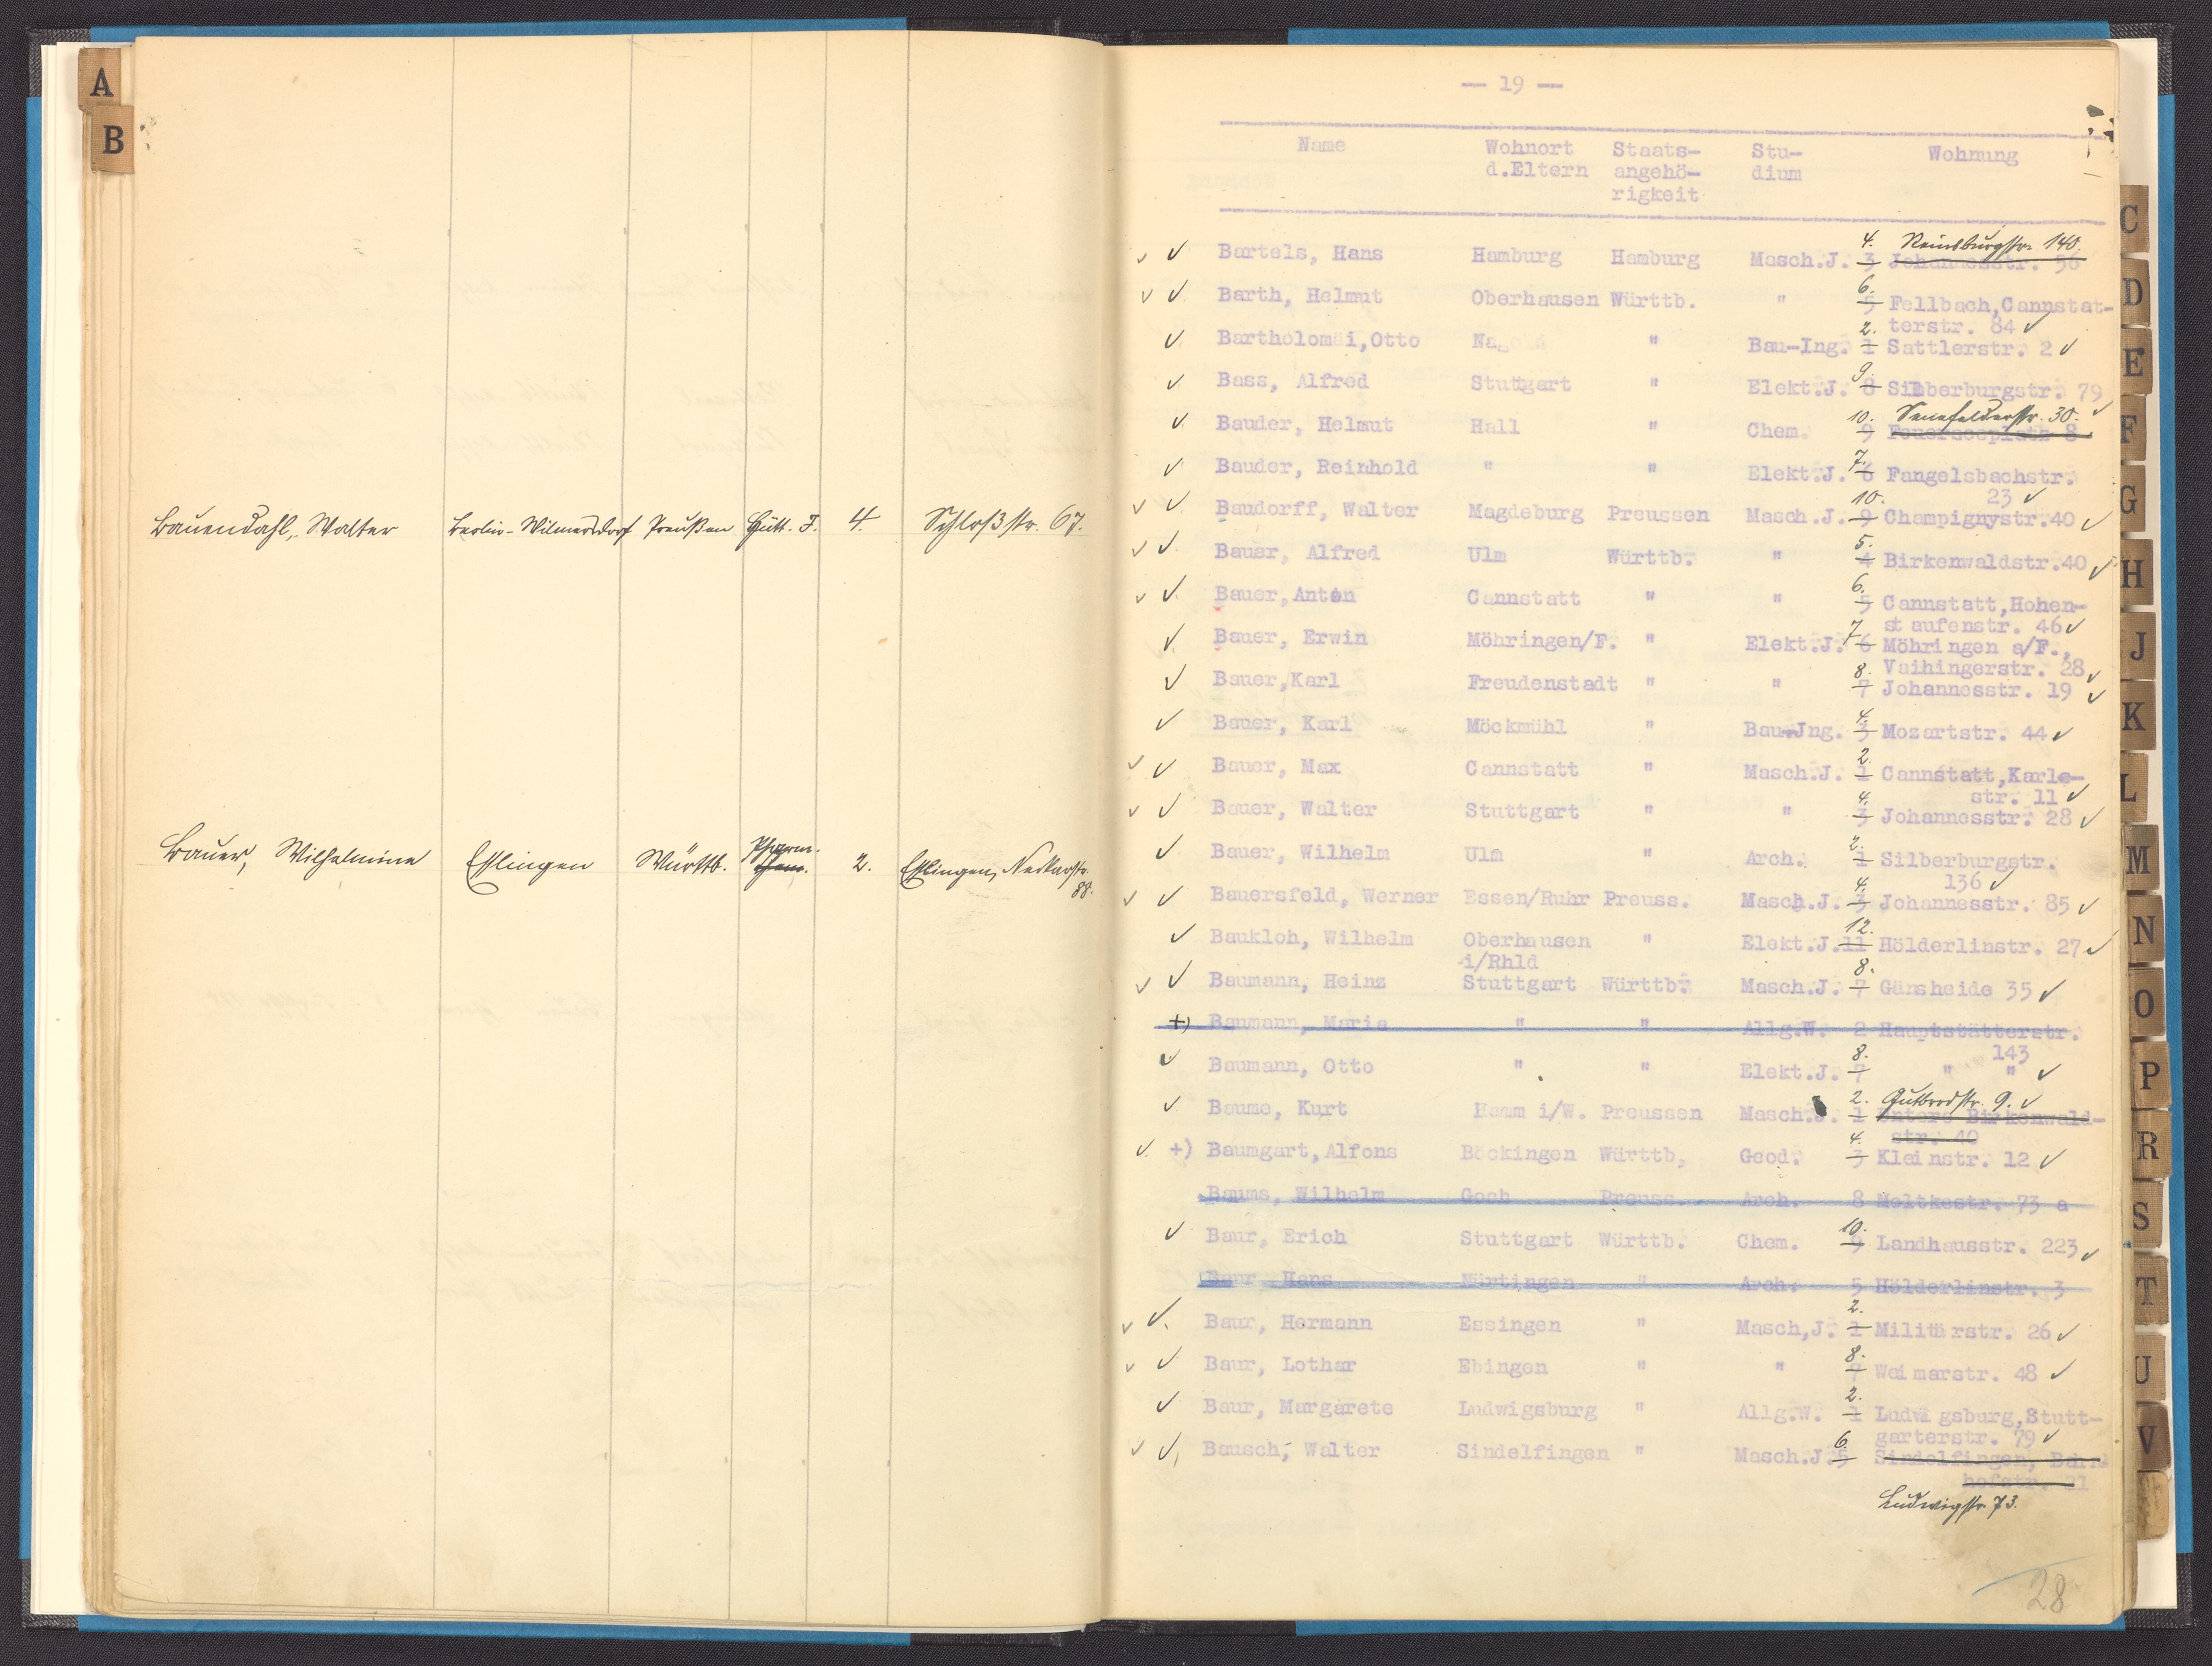 A
B
Bauendahl, Walter Berlin-Wilmersdorf Preußen Hütt. J. 4. Schloßstr. 67.
Bauer, Wilhelmine Esslingen Württb. Pharm. 2. Esslingen, Neckarstr.
Chem.
88.
— 19 —
Name Wohnort Staats- Stu- Wohnung
d.Eltern angehö- dium
rigkeit
4. Reinsburgstr. 140.
Bartels, Hans Hamburg Hamburg Masch.J. 3 Johannesstr. 56
6.
Barth, Helmut Oberhausen Württb. " 5 Fellbach,Cannstat-
2. terstr. 84 ✓
Bartholomäi,Otto Nagold " Bau-Ing. 1 Sattlerstr. 2 ✓
9.
Bass, Alfred Stuttgart " Elekt.J. 8 Silberburgstr. 79
10. Senefelderstr. 30. ✓
Bauder, Helmut Hall " Chem. 9 Feuerseeplatz 8
7.
Bauder, Reinhold " " Elekt.J. 6 Fangelsbachstr.
10. 23 ✓
Baudorff, Walter Magdeburg Preussen Masch.J. 9 Champignystr.40 ✓
5.
Bauer, Alfred Ulm Württb. " 4 Birkenwaldstr.40 ✓
6.
Bauer,Anton Cannstatt " " 5 Cannstatt,Hohen-
7. staufenstr. 46 ✓
Bauer, Erwin Möhringen/F. " Elekt.J. 6 Möhringen a/F.,
8. Vaihingerstr. 28 ✓
Bauer,Karl Freudenstadt " " 7 Johannesstr. 19 ✓
4.
Bauer, Karl Möckmühl " Bau-Jng. 3 Mozartstr. 44 ✓
2.
Bauer, Max Cannstatt " Masch.J. 1 Cannstatt,Karls-
4. str. 11 ✓
Bauer, Walter Stuttgart " " 3 Johannesstr. 28 ✓
2.
Bauer, Wilhelm Ulm " Arch. 1 Silberburgstr.
4. 136 ✓
Bauersfeld, Werner Essen/Ruhr Preuss. Masch.J. 3 Johannesstr. 85 ✓
12.
Baukloh, Wilhelm Oberhausen " Elekt.J.11 Hölderlinstr. 27 ✓
i/Rhld 8.
Baumann, Heinz Stuttgart Württb. Masch.J. 7 Gänsheide 35 ✓
+) Baumann, Maria " " Allg.W. 2 Hauptstätterstr.
8. 143
Baumann, Otto " " Elekt.J. 7 " " ✓
2. Gutbrodstr. 9. ✓
Baume, Kurt Hamm i/W. Preussen Masch.J. 1 Untere Birkenwald-
4. str. 40
+) Baumgart,Alfons Böckingen Württb, Geod. 3 Kleinstr. 12 ✓
Baums, Wilhelm Goch Preuss. Arch. 8 Moltkestr. 73 a
10.
Baur, Erich Stuttgart Württb. Chem. 9 Landhausstr. 223 ✓
Baur, Hans Nürtingen " Arch. 5 Hölderlinstr. 3
2.
Baur, Hermann Essingen " Masch,J. 1 Militärstr. 26 ✓
8.
Baur, Lothar Ebingen " " 7 Weimarstr. 48 ✓
2.
Baur, Margarete Ludwigsburg " Allg.W. 1 Ludwigsburg,Stutt-
6. garterstr. 79 ✓
Bausch, Walter Sindelfingen " Masch.J.5 Sindelfingen, Bahn-
hofstr. 21
Ludwigstr. 73.
28
C
D
E
F
G
H
J
K
L
M
N
O
P
R
S
T
U
V